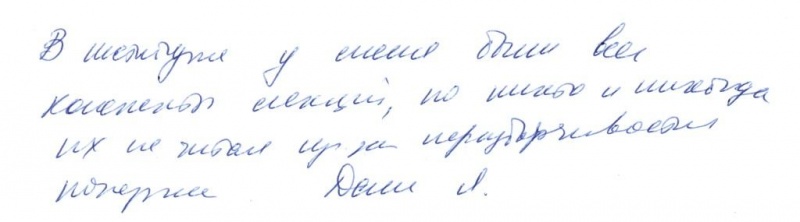 В институте у меня были все
конспекты лекций, но никто и никогда
их не читал из за неразборчивости
почерка Даже я.